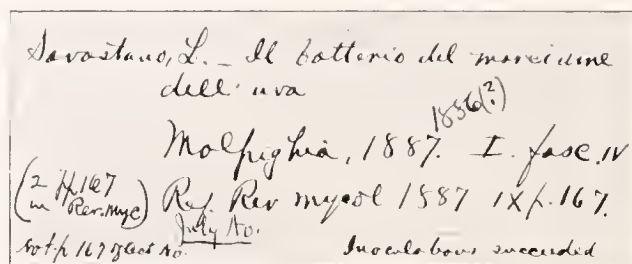 Savastano, L. _ Il batterio del marciume
dell' uva
1886(?)
Molpighia, 1887. I. fasc. IV
(2 pp 167
in Rev. Myc)
Ref. Rev mycol 1887 IX p. 167.
July No.
not p 167 of Oct No.
Inoculations succeeded